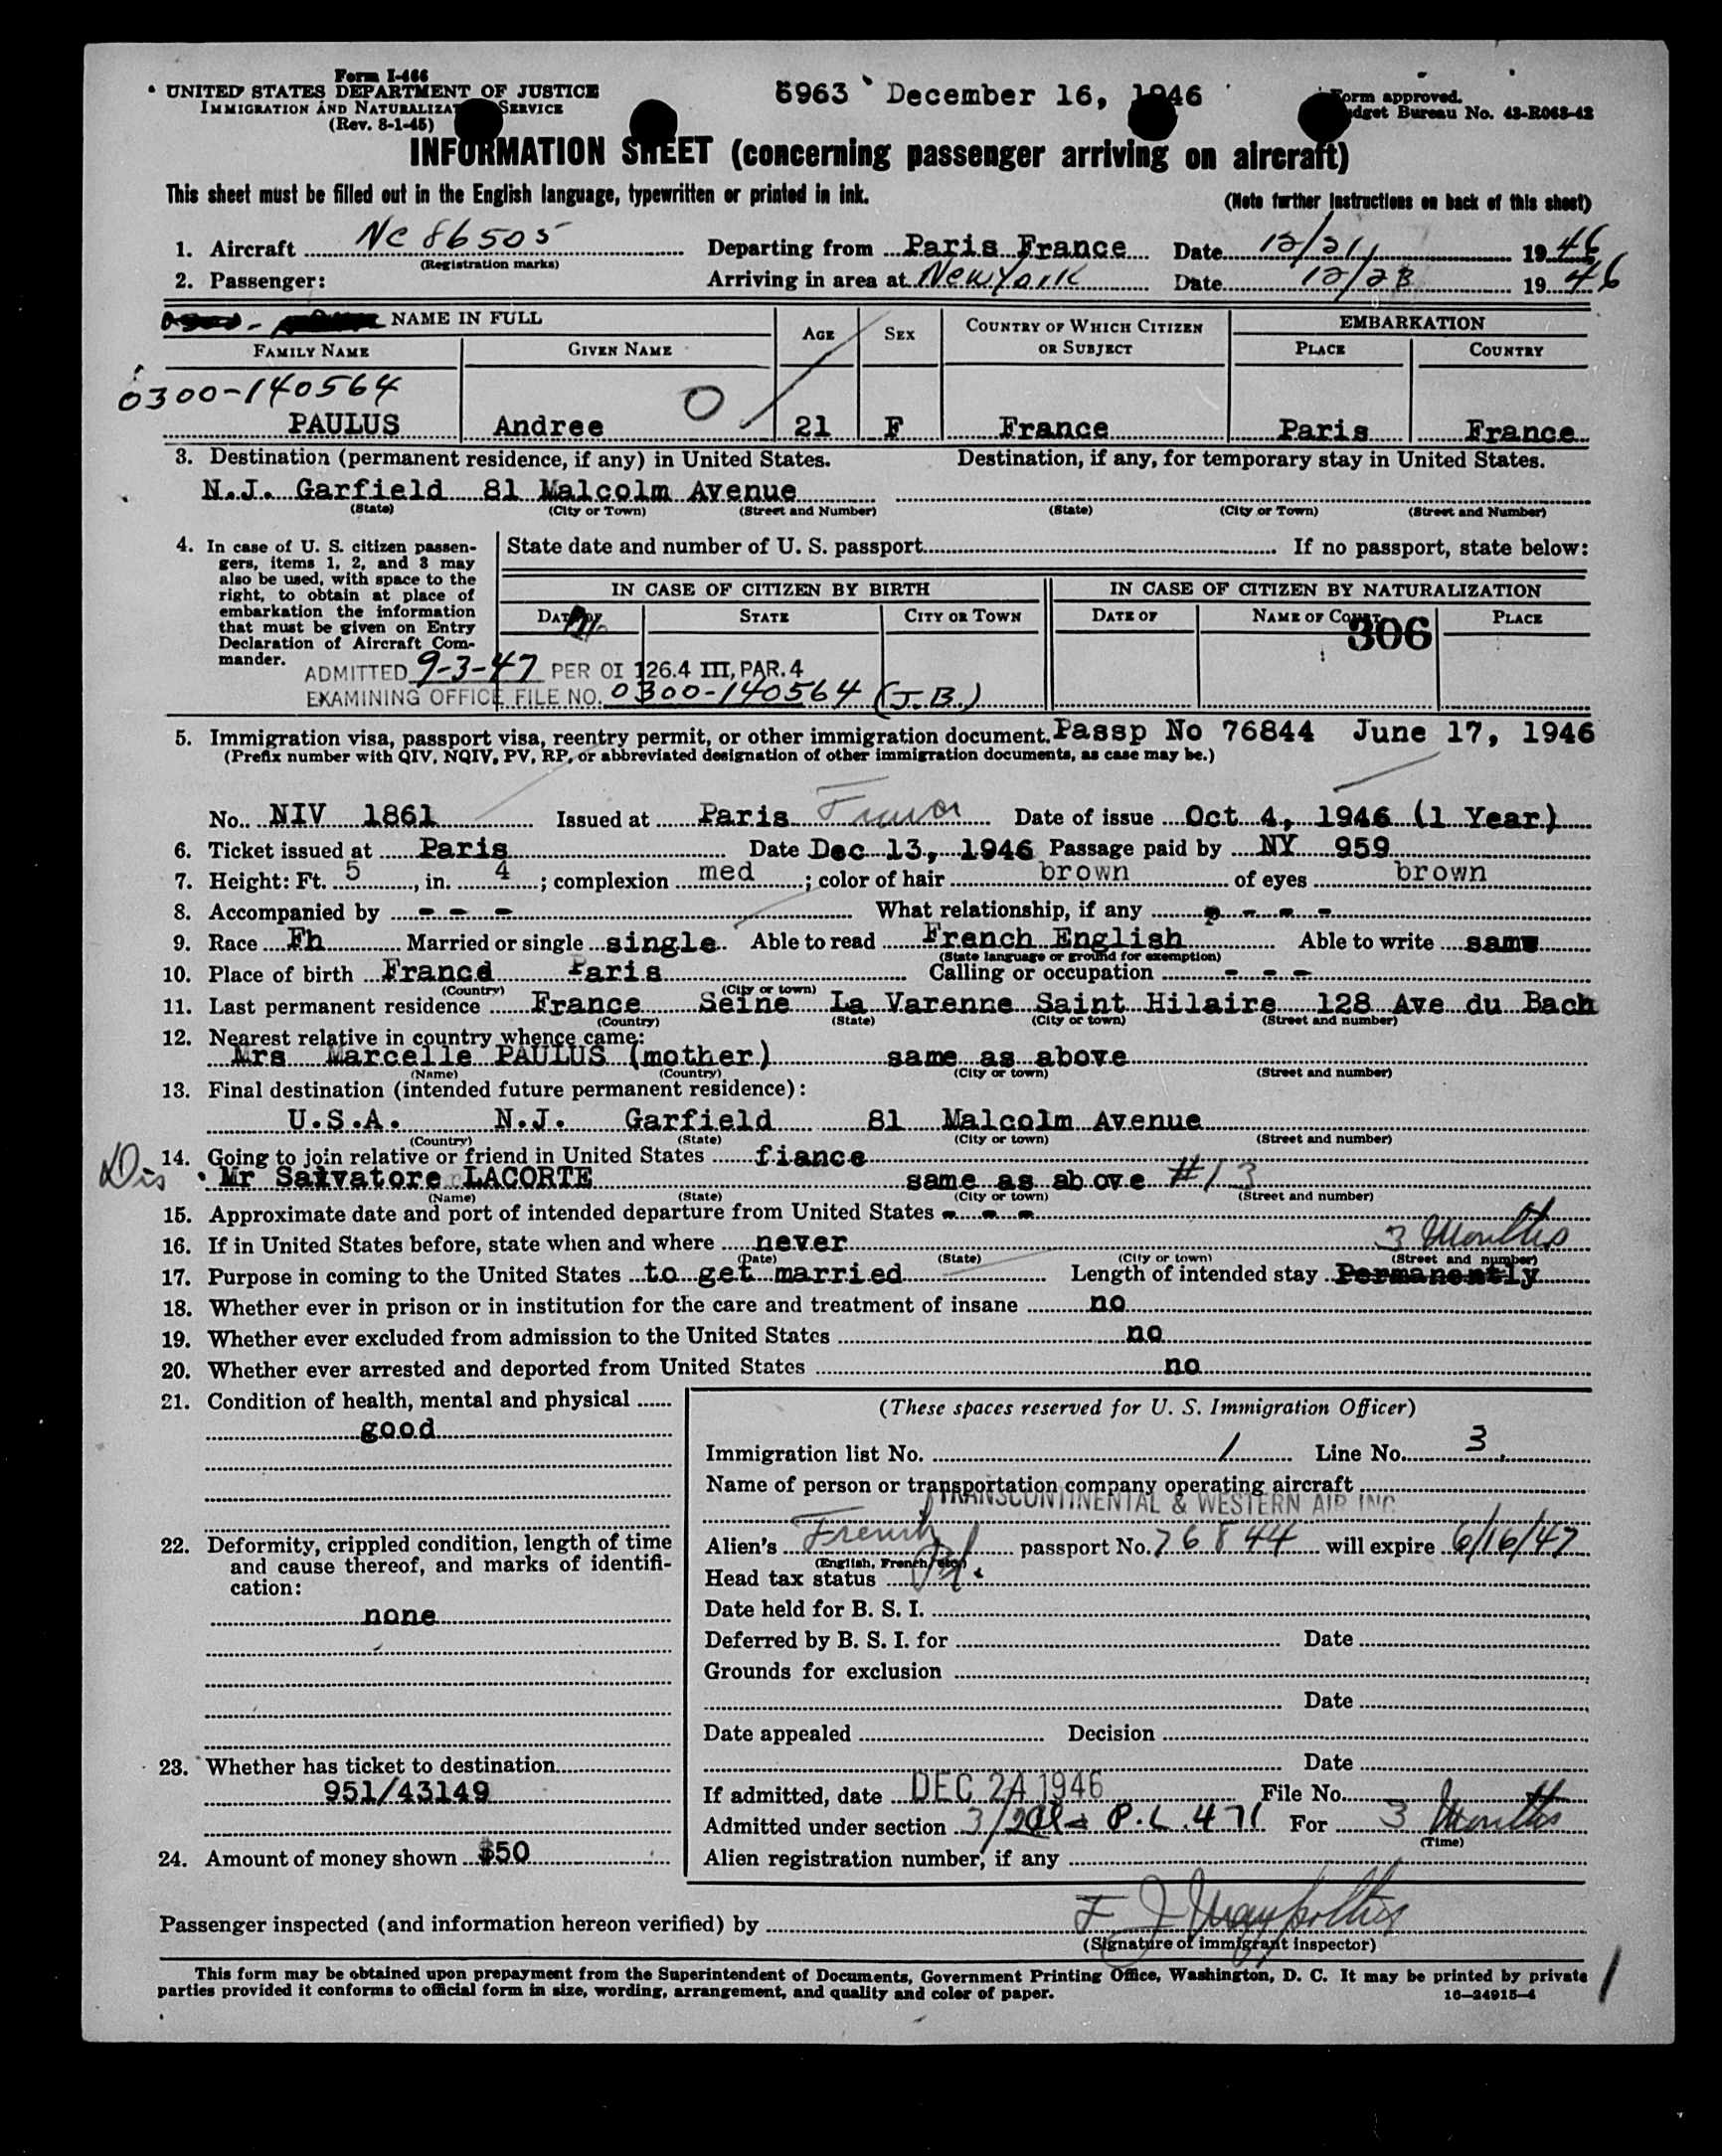 Form I-466
UNITED STATES DEPARTMENT OF JUSTICE
IMMIGRATION AND NATURALIZATION SERVICE
(Rev. 8-1-45)
5963 December 16, 1946
Form approved.
Budget Bureau No. 43-R068-42
INFORMATION SHEET (concerning passenger arriving on aircraft)
This sheet must be filled out in the English language, typewritten or printed in ink.
(Note further instructions on back of this sheet)
1. Aircraft NC 86505 Departing from Paris France Date 12/21/ 1946
(Registration marks)
2. Passenger: Arriving in area at New York Date 12/23 1946
NAME IN FULL AGE SEX COUNTRY OF WHICH CITIZEN OR SUBJECT EMBARKATION
FAMILY NAME GIVEN NAME PLACE COUNTRY
0300-140564
PAULUS Andree O 21 F France Paris France
3. Destination (permanent residence, if any) in United States. Destination, if any, for temporary stay in United States.
N.J. Garfield 81 Malcolm Avenue
(State) (City or Town) (Street and Number) (State) (City or Town) (Street and Number)
4. In case of U. S. citizen passengers, items 1, 2, and 3 may also be used, with space to the right, to obtain at place of embarkation the information that must be given on Entry Declaration of Aircraft Commander.
State date and number of U. S. passport If no passport, state below:
IN CASE OF CITIZEN BY BIRTH IN CASE OF CITIZEN BY NATURALIZATION
DATE OF STATE CITY OR TOWN DATE OF NAME OF COURT PLACE
306
ADMITTED 9-3-47 PER OI 126.4 III, PAR. 4
EXAMINING OFFICE FILE NO. 0300-140564 (J.B.)
5. Immigration visa, passport visa, reentry permit, or other immigration document. Passp No 76844 June 17, 1946
(Prefix number with QIV, NQIV, PV, RP, or abbreviated designation of other immigration documents, as case may be.)
No. NIV 1861 Issued at Paris France Date of issue Oct 4, 1946 (1 Year)
6. Ticket issued at Paris Date Dec 13, 1946 Passage paid by NY 959
7. Height: Ft. 5, in. 4; complexion med; color of hair brown of eyes brown
8. Accompanied by - - - What relationship, if any - - - -
9. Race Fh Married or single single Able to read French English Able to write same
(State language or ground for exemption)
10. Place of birth France Paris Calling or occupation - - -
(Country) (City or town)
11. Last permanent residence France Seine La Varenne Saint Hilaire 128 Ave du Bach
(Country) (State) (City or town) (Street and number)
12. Nearest relative in country whence came:
Mrs Marcelle PAULUS (mother) same as above
(Name) (Country) (City or town) (Street and number)
13. Final destination (intended future permanent residence):
U.S.A. N.J. Garfield 81 Malcolm Avenue
(Country) (State) (City or town) (Street and number)
14. Going to join relative or friend in United States fiance
Dis Mr Salvatore LACORTE same as above #13
(Name) (State) (City or town) (Street and number)
15. Approximate date and port of intended departure from United States - - -
16. If in United States before, state when and where never 3 Months
(Date) (State) (City or town) (Street and number)
17. Purpose in coming to the United States to get married Length of intended stay Permanently
18. Whether ever in prison or in institution for the care and treatment of insane no
19. Whether ever excluded from admission to the United States no
20. Whether ever arrested and deported from United States no
21. Condition of health, mental and physical
good
22. Deformity, crippled condition, length of time and cause thereof, and marks of identification:
none
23. Whether has ticket to destination
951/43149
24. Amount of money shown $50
(These spaces reserved for U. S. Immigration Officer)
Immigration list No. 1 Line No. 3
Name of person or transportation company operating aircraft
TRANSCONTINENTAL & WESTERN AIR INC
Alien's French passport No. 76844 will expire 6/16/47
(English, French, etc.)
Head tax status
Date held for B. S. I.
Deferred by B. S. I. for Date
Grounds for exclusion
Date
Date appealed Decision
Date
If admitted, date DEC 24 1946 File No.
Admitted under section P.L. 471 For 3 Months
(Time)
Alien registration number, if any
Passenger inspected (and information hereon verified) by
(Signature of immigrant inspector)
This form may be obtained upon prepayment from the Superintendent of Documents, Government Printing Office, Washington, D. C. It may be printed by private
parties provided it conforms to official form in size, wording, arrangement, and quality and color of paper.
16-24915-4